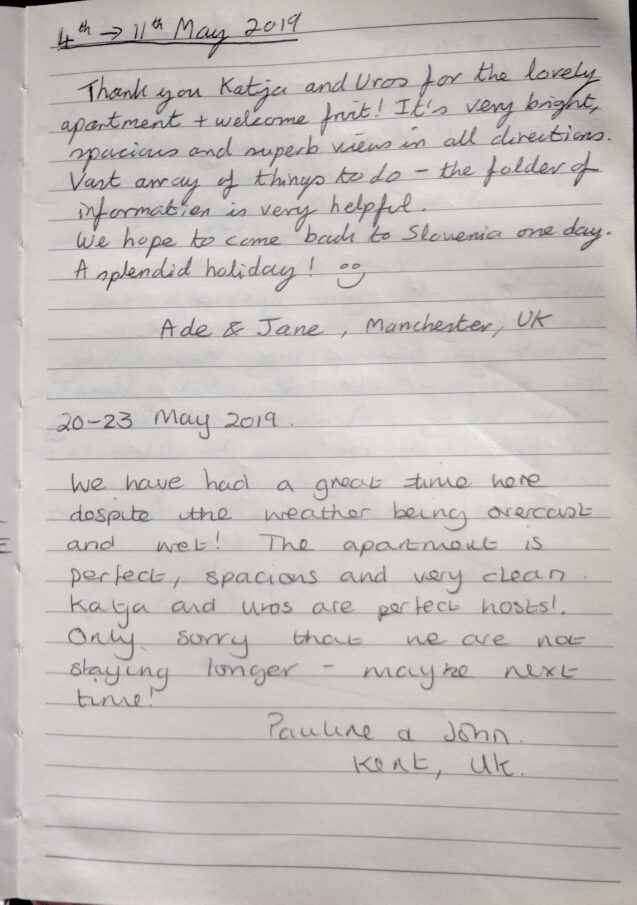 4th → 11th May 2019
Thank you Katja and Uros for the lovely
apartment + welcome fruit! It's very bright,
spacious and superb views in all directions.
Vast array of things to do - the folder of
information is very helpful.
We hope to come back to Slovenia one day.
A splendid holiday!
Ade & Jane, Manchester, UK
20-23 May 2019.
We have had a great time here
despite the weather being overcast
and wet! The apartment is
perfect, spacious and very clean.
Katja and Uros are perfect hosts!
Only sorry that we are not
staying longer - maybe next
time!
Pauline & John.
Kent, UK.